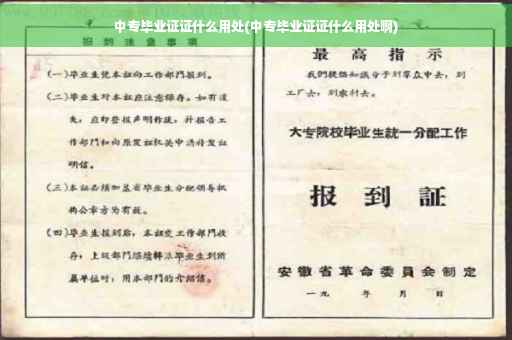 中专毕业证证什么用处(中专毕业证证什么用处啊)
报到注意事项
(一)毕业生凭本证向工作部门报到。
(二)毕业生对本证应注意保存。如有遗
失,应即登报声明作废,并报告工
作部门和向原发证机关申请补发证
明信。
(三)本证必须加盖省毕业生分配领导机
构公章方为有效。
(四)毕业生报到后,本证交工作部门收
存;上级部门
毕业生到所
属单位时,用本部门的介绍信。
最高指示
我们提倡知识分子到群众中去,到
工厂去,到农村去。
大专院校毕业生統一分配工作
报到証
安徽省革命委員会制定
一九 年 月 日